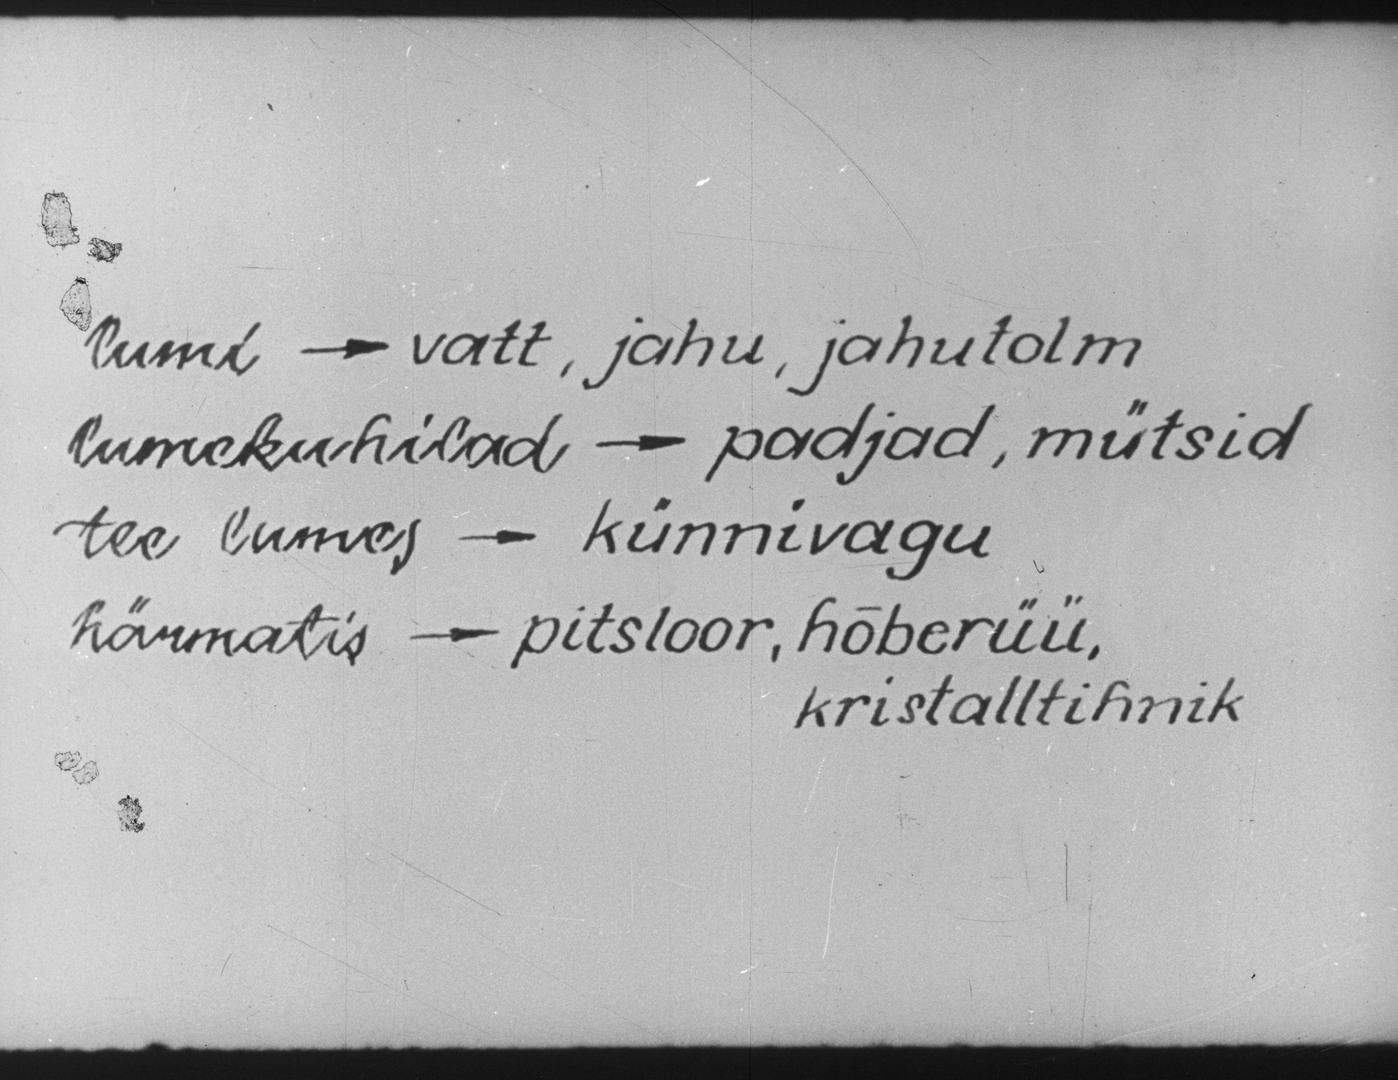 lumi → vatt, jahu, jahutolm
lumekuhilad → padjad, mütsid
tee lumes → künnivagu
härmatis → pitsloor, hōberüü,
kristalltihnik